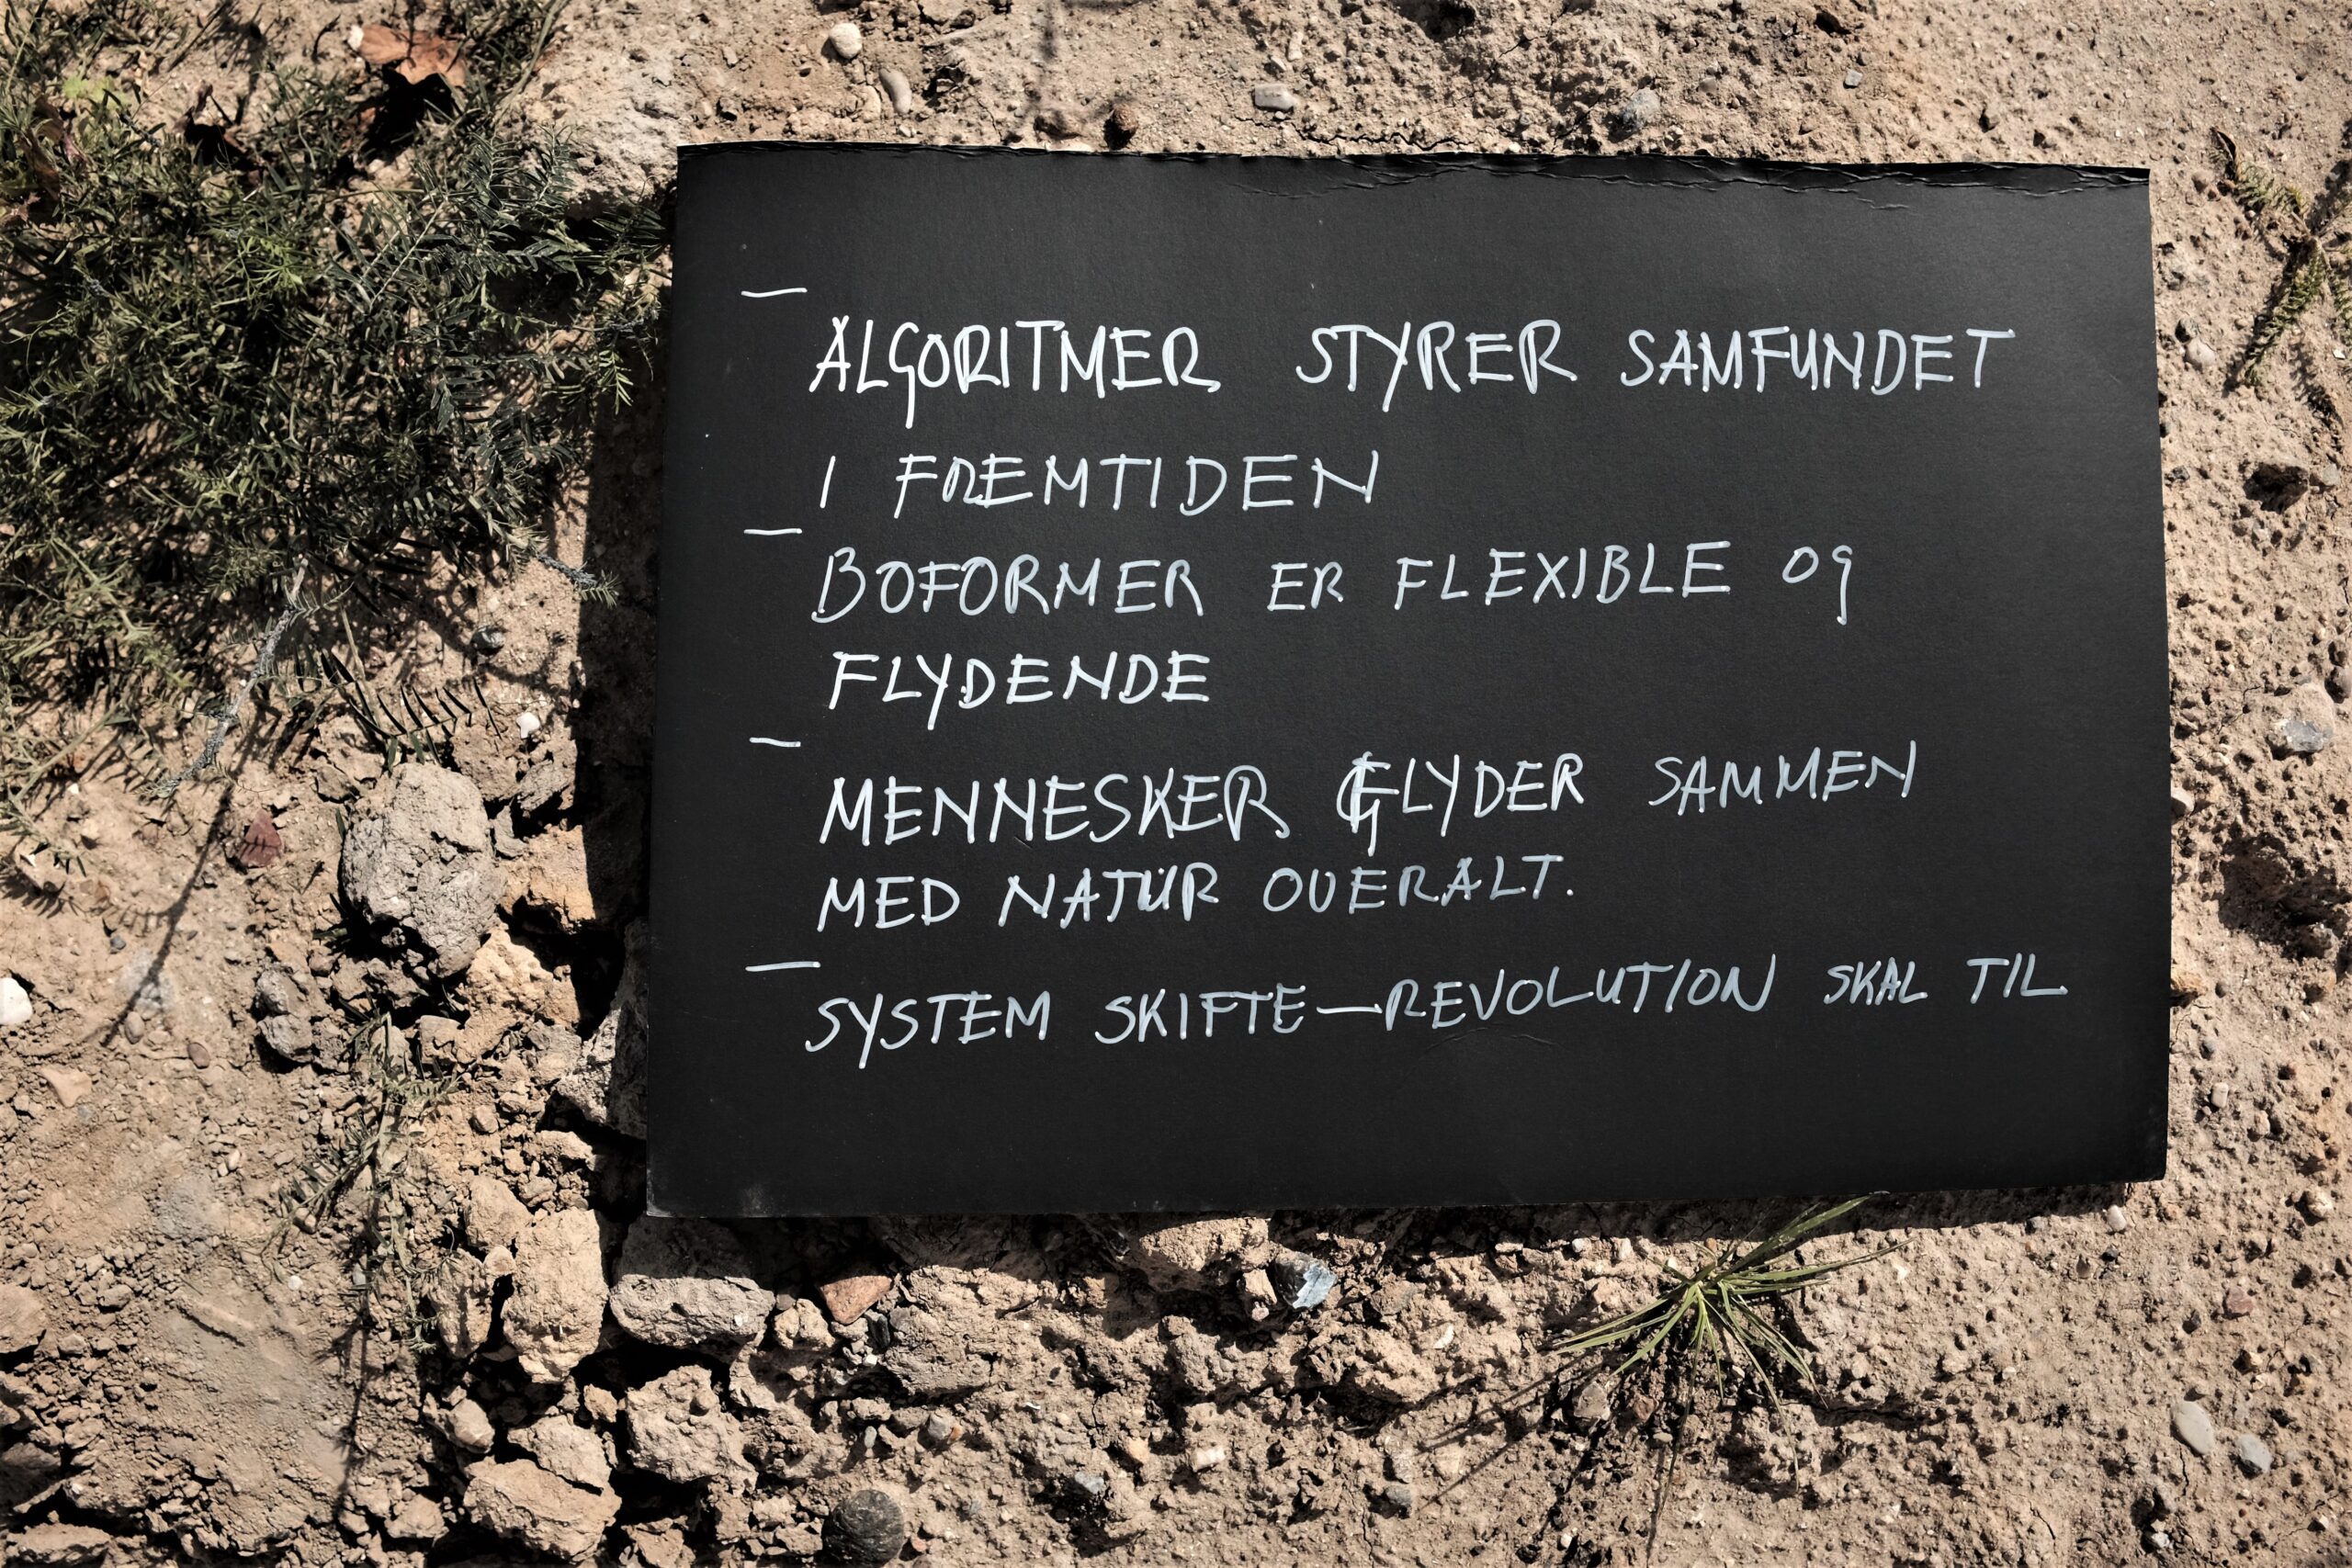 — ALGORITMER STYRER SAMFUNDET
I FREMTIDEN
— BOFORMER ER FLEXIBLE OG
FLYDENDE
— MENNESKER FLYDER SAMMEN
MED NATUR OVERALT.
— SYSTEM SKIFTE—REVOLUTION SKAL TIL